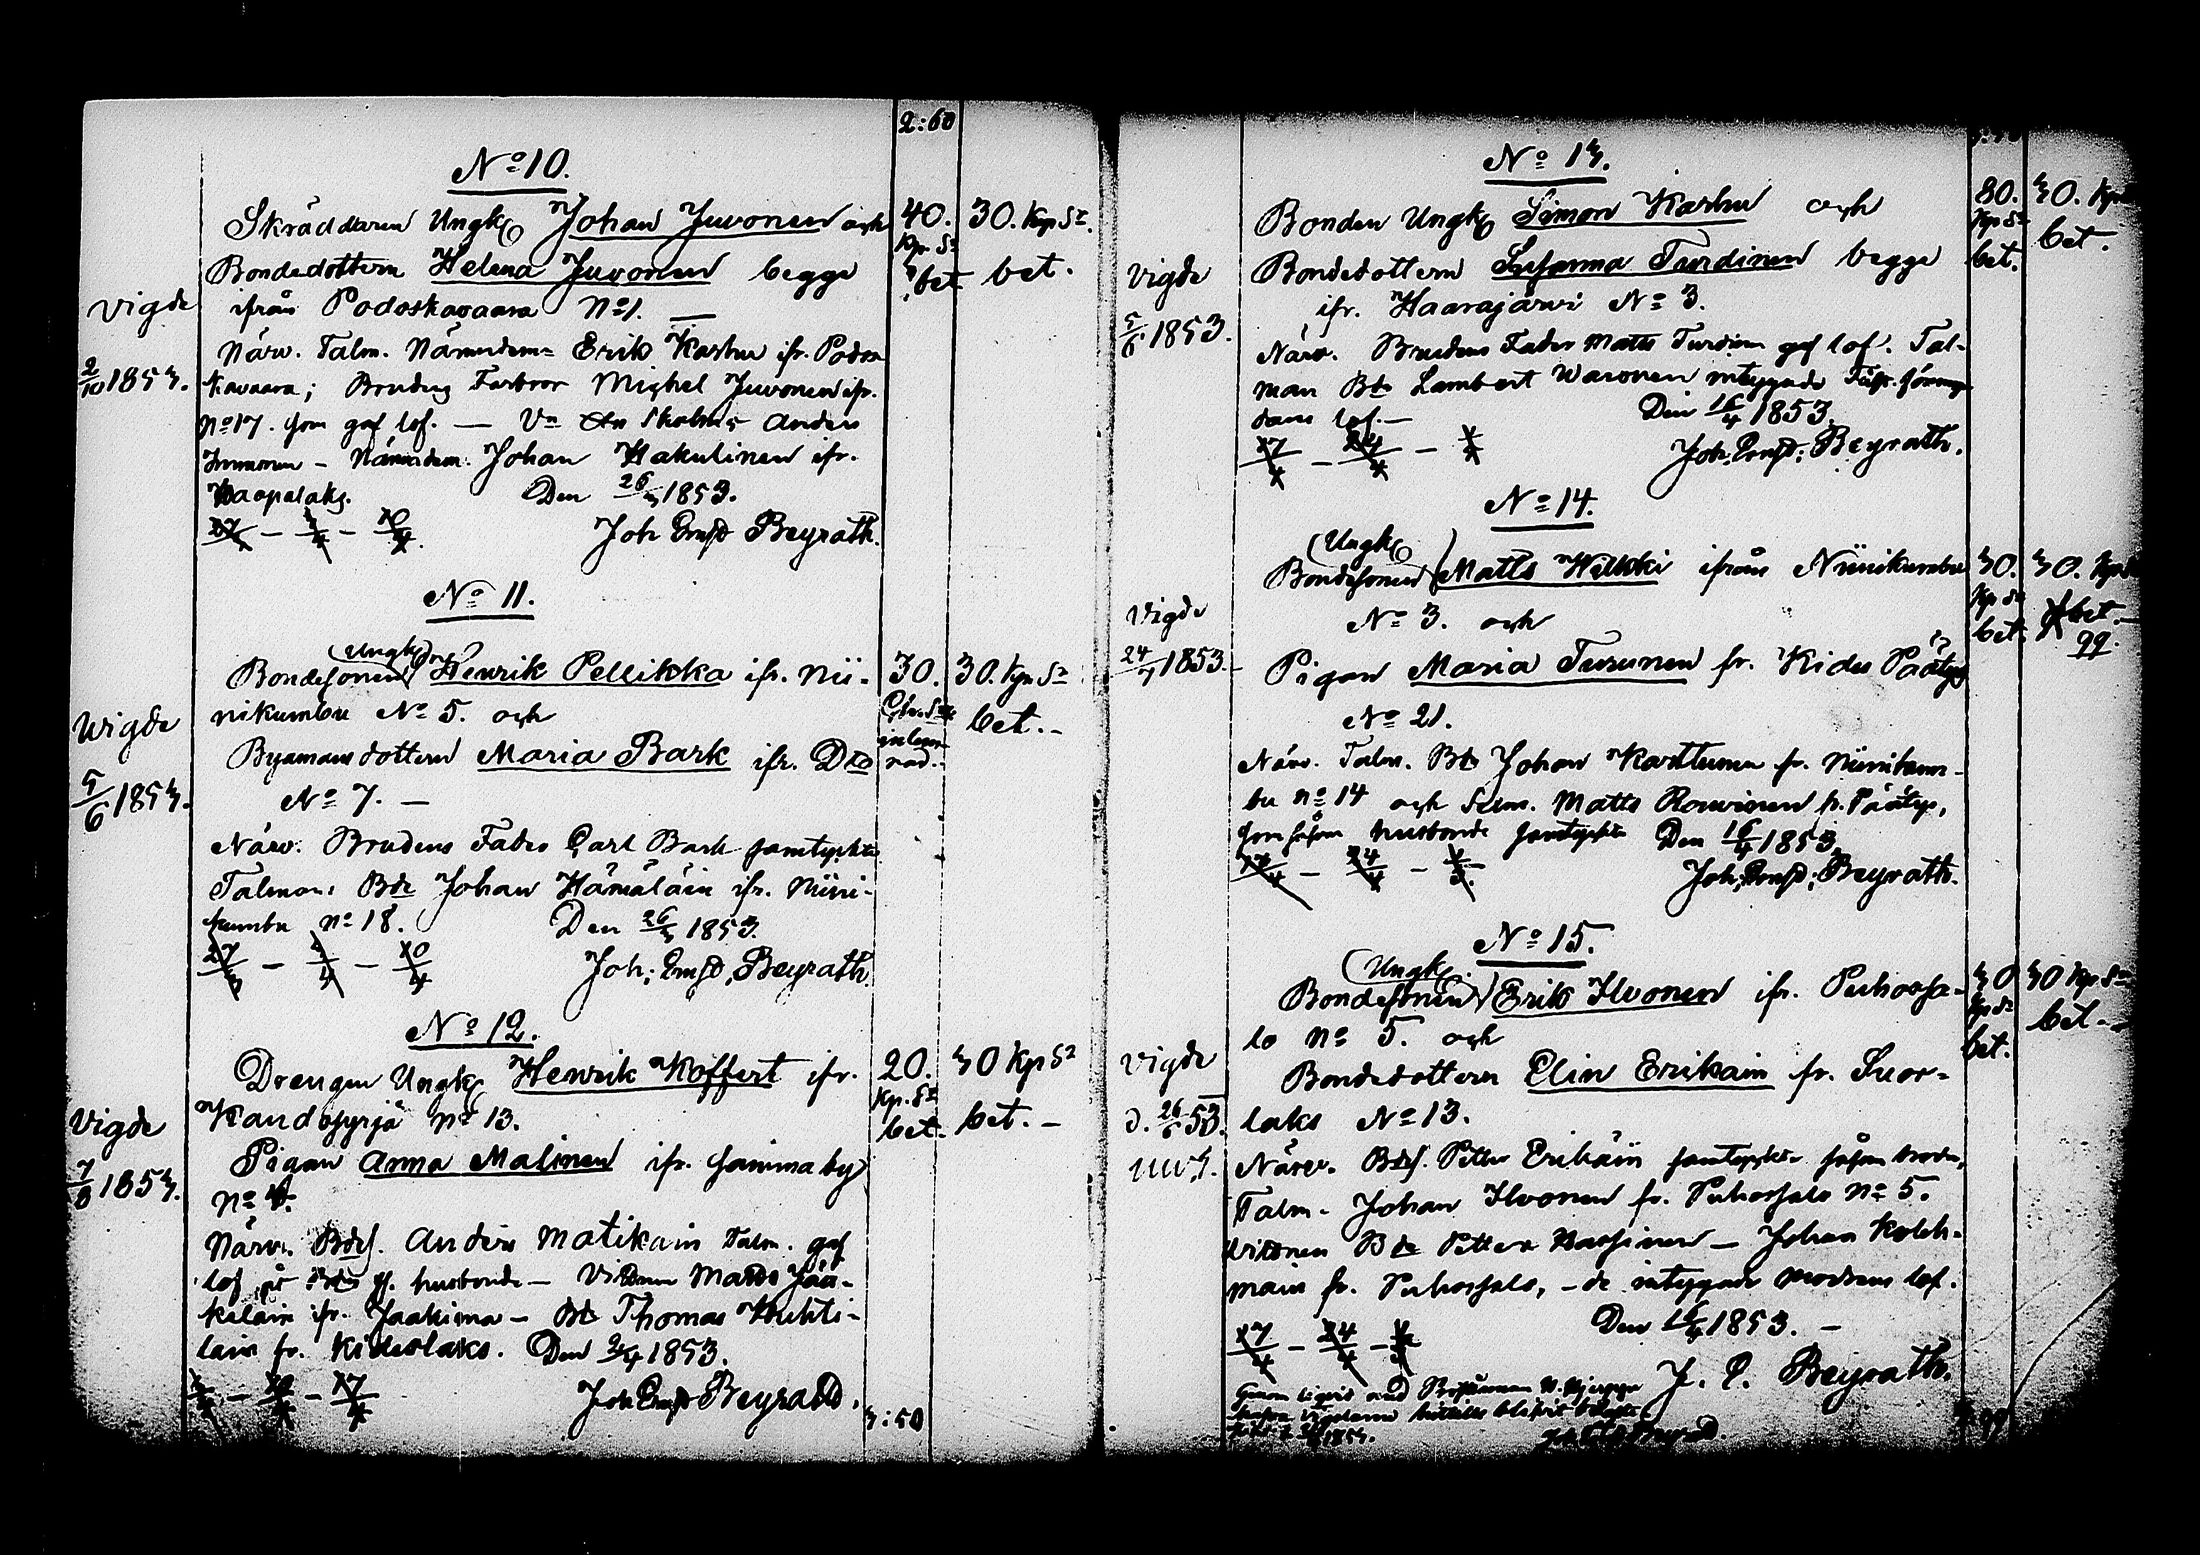 2:60
No 10.
Skräddaren Ungk. Johan Juvonen och
Bondedottern Helena Juvonen begge
ifrån Podoskavaara No 1.
Vigde
2/10 1853.
Närv. Talm. Nämndem. Erik Karhu ifr. Podos
kavaara; Brudens Farbror Michel Juvonen ifr.
No 17. som gaf lof. — Anders
Immonen – Nämndem. Johan Hakulinen ifr.
Haapalaks. Den 26/3 1853.
27/3 – 3/4 – 10/4.
Joh Ernst Beyrath.
40. Kp. Sr bet
30. Kop Sr. bet.
No 11.
Ungk.
Bondesonen Henrik Pellikka ifr. Nii-
nikumbu No 5. och
Byamansdottern Maria Bark ifr. Dto
No 7. —
Vigde
5/6 1853.
Närv. Brudens Fader Carl Bark samtyckte
Talman: Bde Johan Hämäläin ifr. Niini-
kumbu No 18. Den 26/3 1853.
27/3 – 3/4 – 10/4
Joh: Ernst Beyrath.
30.
30. Kop Sr
bet.-
No 12.
Drengen Ungk. Henrik Koffert ifr.
No 13.
Pigan Anna Malinen ifr. Samma by
No 4.
Vigde
7/8 1853.
Närv. Bdes. Anders Matikain Talm. gaf
lof husbonde – Vidare Matts Jää-
keläin ifr. Jaakima – Bde Thomas Huhti-
lain fr. Kideslaks. Den 2/4 1853.
3/4 – 10/4 – 17/4
Joh Ernst Beyrath.
20. Kp. Sr bet.
30 Kp Sr
bet. –
3:50
No 13.
Bonden Ungk. Simon Karhu och
Bondedottern Susanna Turdinen begge
ifr. Haarajärvi No 3.
Vigde
5/6 1853.
Närv. Brudens Fader Matts Turdinen gaf lof. Tal-
man Bde Lambert Waronen intygade
dans lof.— Den 16/4 1853.
17/4 – 24/4 – 1/5
Joh. Ernst: Beyrath.
80. Kp Sr bet.
30. Kop
bet.
No 14.
Ungk.
Bondesonen Matts Hilkki ifrån Niinikumbu
No 3. och
Pigan Maria Turunen fr. Kides Päätye
No 21.
Vigde
24/7 1853.-
Närv. Talm. Bde Johan Karttunen fr. Niinikum-
bu No 14 och Matts Rouvinen fr. Päätye,
som såsom husbonde samtyckte Den 16/4 1853.
17/4 – 24/4 – 1/5.
Joh; Ernst; Beyrath.
30. Kp Sr bet.
30. Kop
bet.-
99.
No 15.
Ungk.
Bondesonen Erik Ilvonen ifr. Puhossa-
lo No 5. och
Bondedottern Elin Erikain fr. Suor-
laks No 13.
Vigde
d. 26/6 53.
Närv. Bdes. Petter Erikäin samtyckte såsom broder,
Talm. Johan Ilvonen fr. Puhossalo No 5.
Vittnen Bde Petter Hassinen – Johan Koleh-
main fr. Puhossalo, – de intygade modrens lof.
Den 16/4 1853. –
17/4 – 24/4 – 1/5
J. E. Beyrath.
30 Kp Sr bet.
30 Kp Sr
bet.-
99